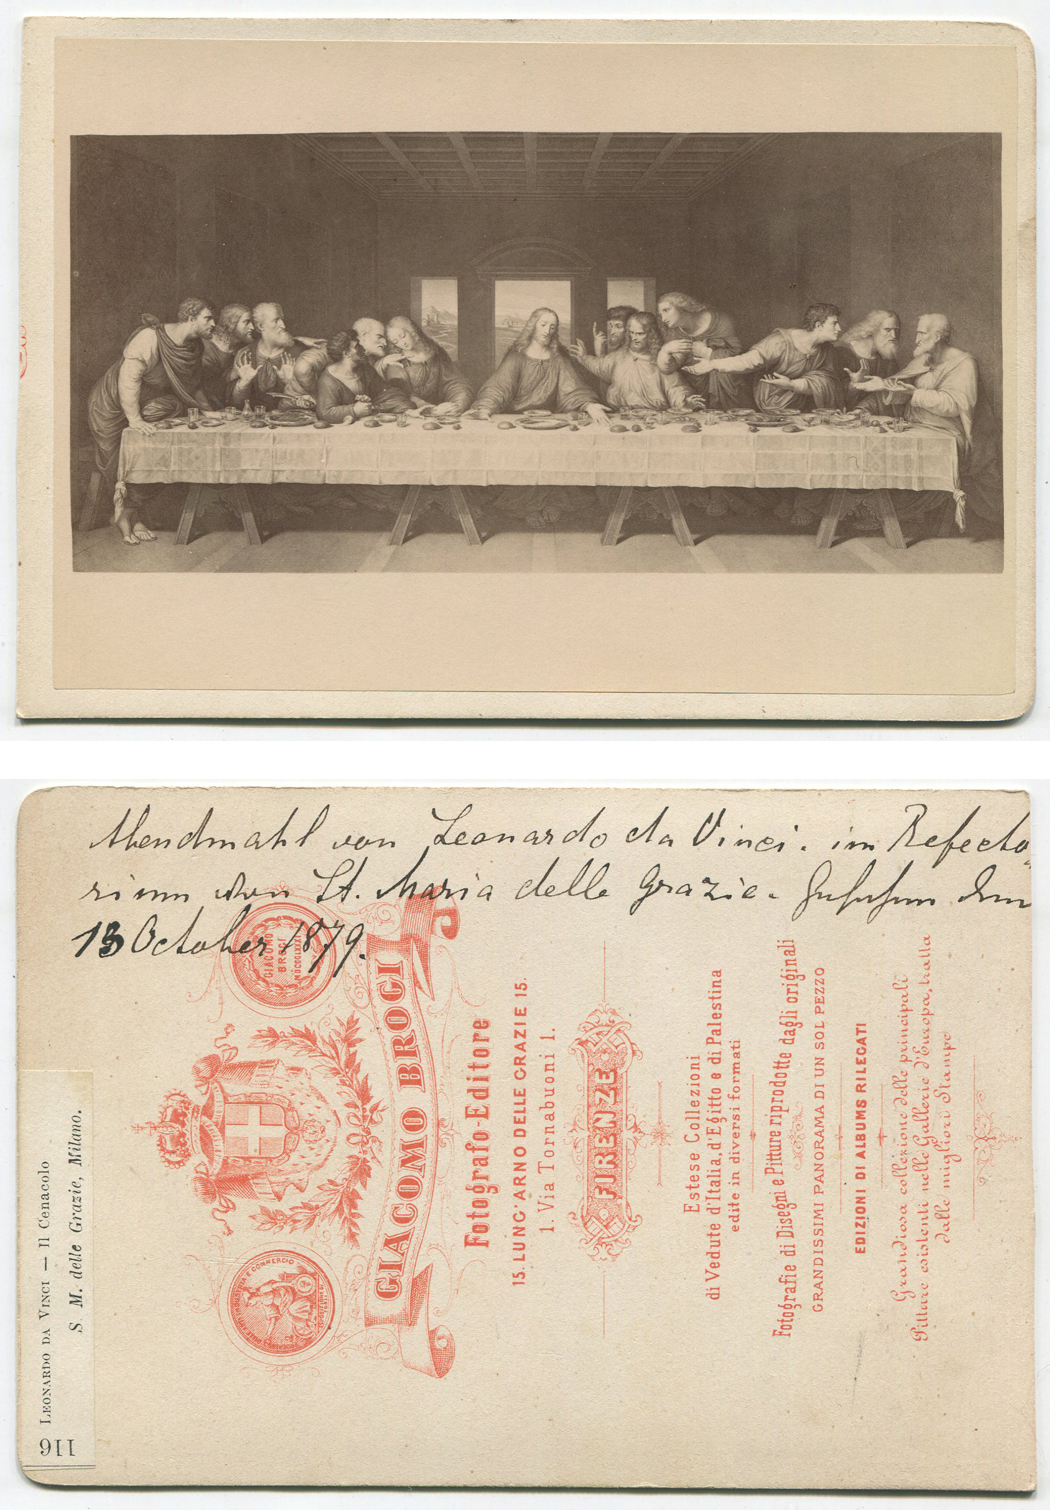 Abendmahl von Leonardo da Vinci. im Refecto-
rium von St. Maria delle Grazie. Gesehen den
13 October 1879.
GIACOMO
BROGI
GIACOMO BROGI
Fotografo-Editore
15. LUNG'ARNO DELLE GRAZIE 15.
1. Via Tornabuoni 1.
FIRENZE
Estese Collezioni
di Vedute d'Italia, d'Egitto e di Palestina
edite in diversi formati
Fotografie di Disegni e Pitture riprodotte dagli originali
GRANDISSIMI PANORAMA DI UN SOL PEZZO
EDIZIONI DI ALBUMS RILEGATI
Grandiosa collezione delle principali
Pitture esistenti nelle Gallerie d'Europa, tratta
dalle migliori Stampe
116 LEONARDO DA VINCI — Il Cenacolo
S. M. delle Grazie, Milano.